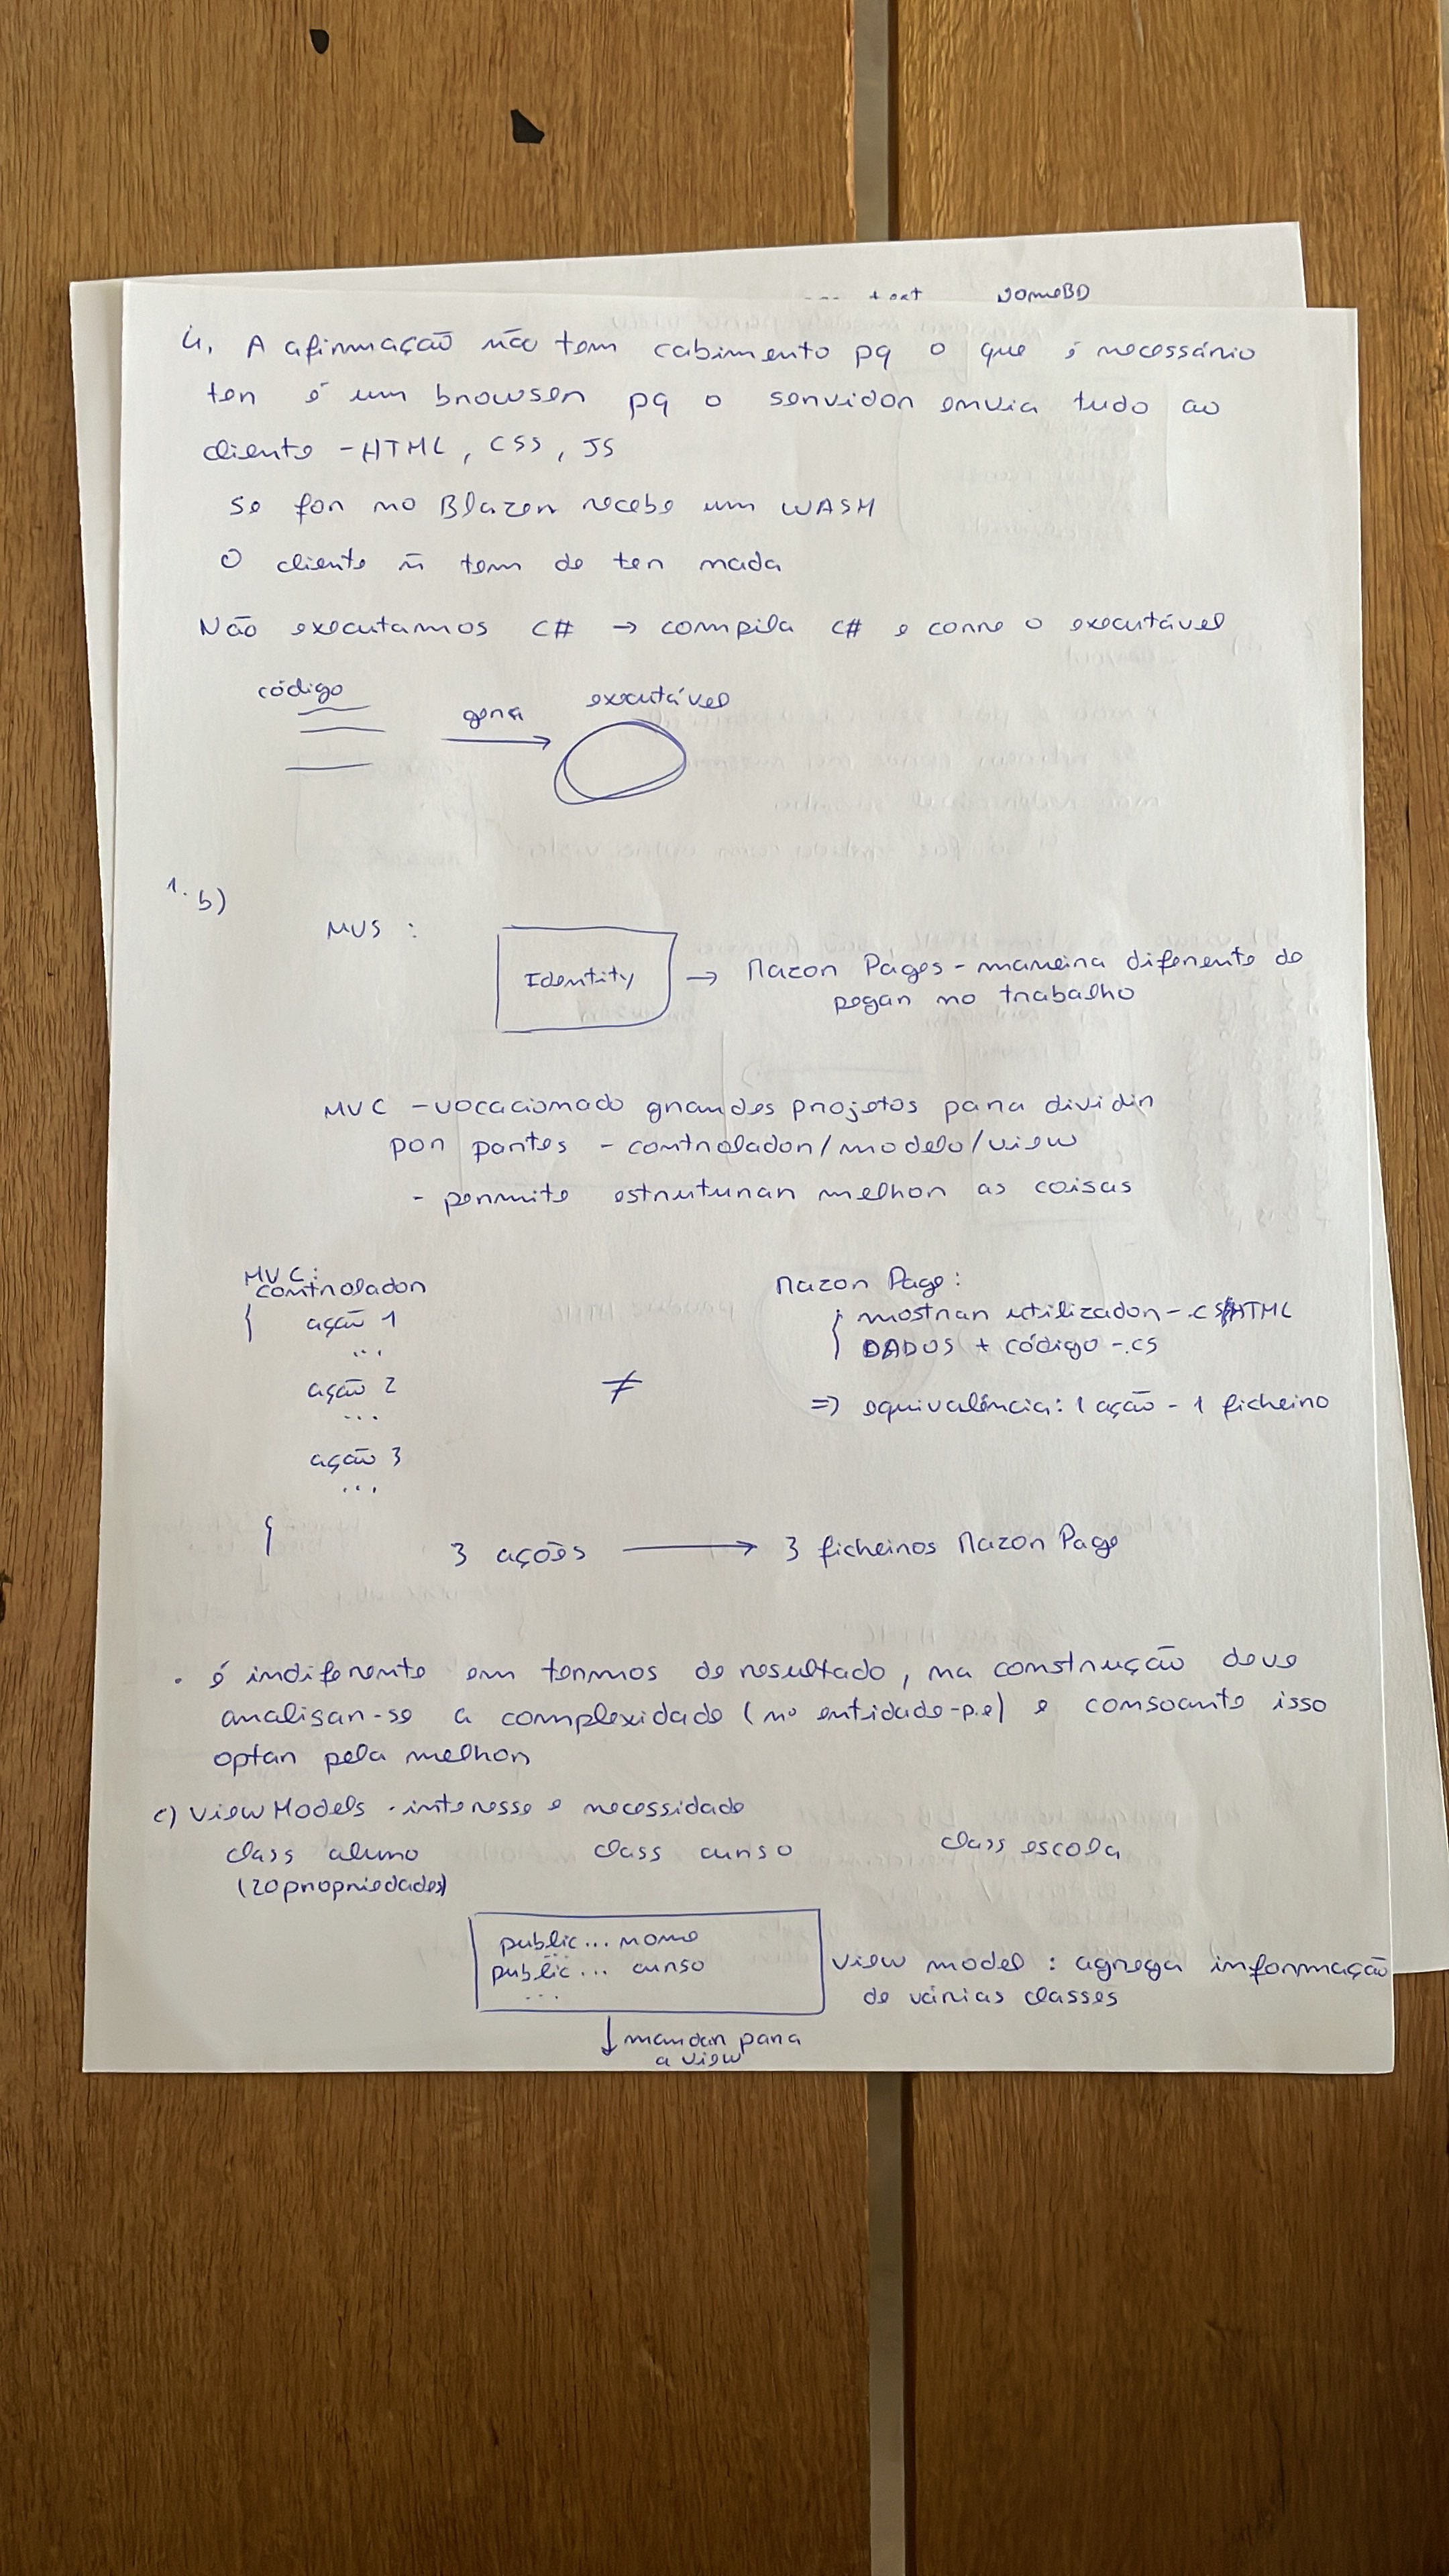 NomeBD
4. A afirmação não tem cabimento pq o que é necessário
ter é um browser pq o servidor envia tudo ao
cliente - HTML, CSS, JS
Se for no Blazor recebe um WASM
O cliente ñ tem de ter nada
Não executamos C# → compila C# e corre o executável
código
gera
executável
1. b)
MVS :
Identity
→ Razor Pages - maneira diferente de
pegar no trabalho
MVC - vocacionado grandes projetos para dividir
por partes - controlador/modelo/view
- permite estruturar melhor as coisas
MVC:
controlador
{ ação 1
...
ação 2
...
ação 3
...
≠
Razor Page:
{ mostrar utilizador - .CSHTML
DADOS + código - .cs
=> equivalência: 1 ação - 1 ficheiro
3 ações → 3 ficheiros Razor Page
. é indiferente em termos de resultado, na construção deve
analisar-se a complexidade (nº entidade - p.e) e consoante isso
optar pela melhor
c) ViewModels . interesse e necessidade
class aluno class curso class escola
(20 propriedades)
public... nome
public... curso
...
view model : agrega informação
de várias classes
↓ mandar para
a view